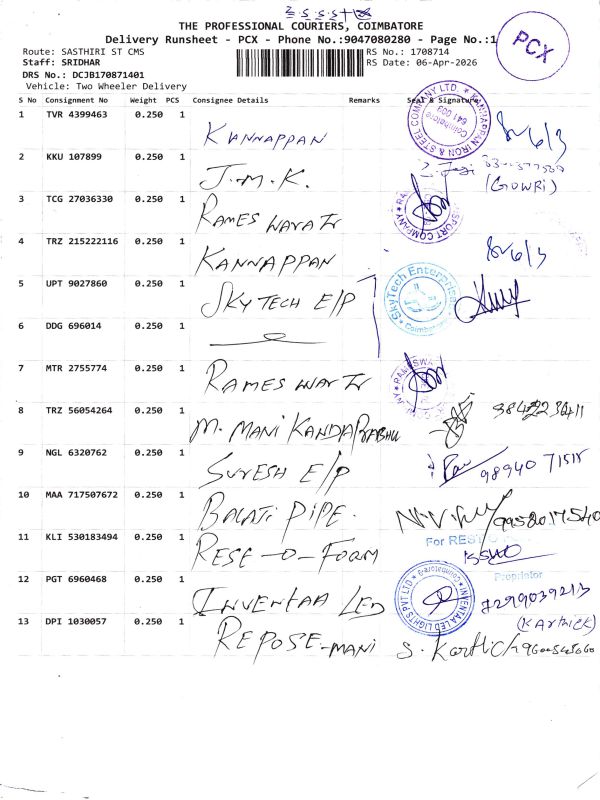 THE PROFESSIONAL COURIERS, COIMBATORE
Delivery Runsheet - PCX - Phone No.:9047080280 - Page No.:1
PCX
Route: SASTHIRI ST CMS
RS No.: 1708714
Staff: SRIDHAR
RS Date: 06-Apr-2026
DRS No.: DCJB170871401
Vehicle: Two Wheeler Delivery
S No Consignment No Weight PCS Consignee Details Remarks Seal & Signature
1 TVR 4399463 0.250 1 KANNAPPAN
KANNAPPAN IRON & STEEL COMPANY LTD. Coimbatore 641 003
2 KKU 107899 0.250 1 J.M.K. (GOWRI)
3 TCG 27036330 0.250 1 RAMES WARA Tr
4 TRZ 215222116 0.250 1 KANNAPPAN
5 UPT 9027860 0.250 1 SKYTECH E/P
SkyTech Enterprise Coimbatore
6 DDG 696014 0.250 1
7 MTR 2755774 0.250 1 RAMES WAR Tr
8 TRZ 56054264 0.250 1 M. MANIKANDAPRABHU
9 NGL 6320762 0.250 1 SURESH E/P 98940 71515
10 MAA 717507672 0.250 1 BALAJI PIPE.
11 KLI 530183494 0.250 1 RESE-O-FOAM For
Proprietor
12 PGT 6960468 0.250 1 INVENTAA LED 7299039213
INVENTAA LED LIGHTS PVT LTD
(KARTHICK)
13 DPI 1030057 0.250 1 REPOSE-MANI S. Karthick